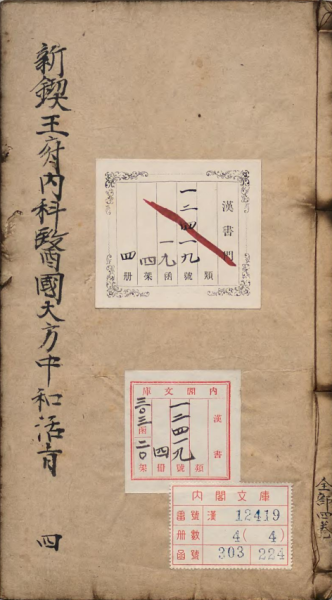 新鍥王府内科醫國大方中和活 四
漢書門
類
一二四一九號
一九函
四架
四冊
內閣文庫
漢書
類
一二四一九號
四冊
三〇三函
二〇架
内閣文庫
番號 漢 12419
冊數 4(4)
函號 303 224
全部四